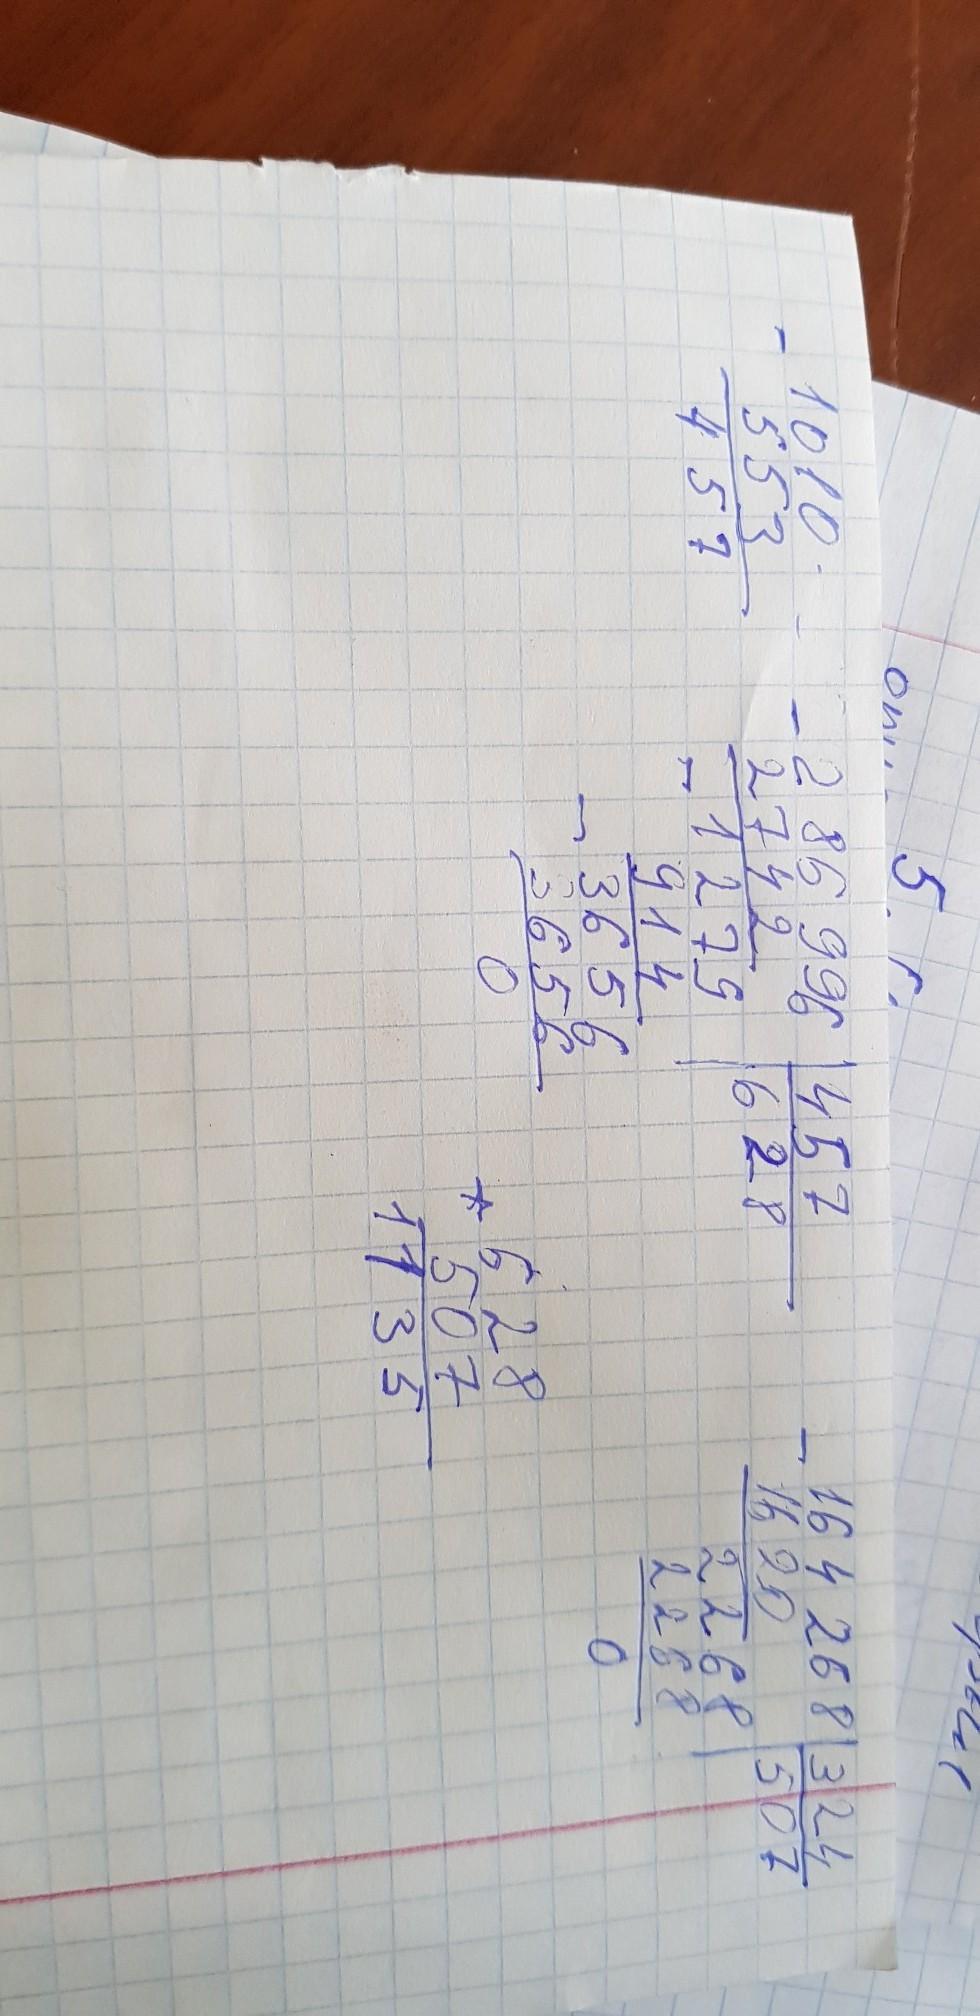 - 1010
553
457
- 286996 | 457
2742 628
- 1279
914
- 3656
3656
0
+ 628
507
1135
- 164268 | 324
1620 507
2268
2268
0
5.